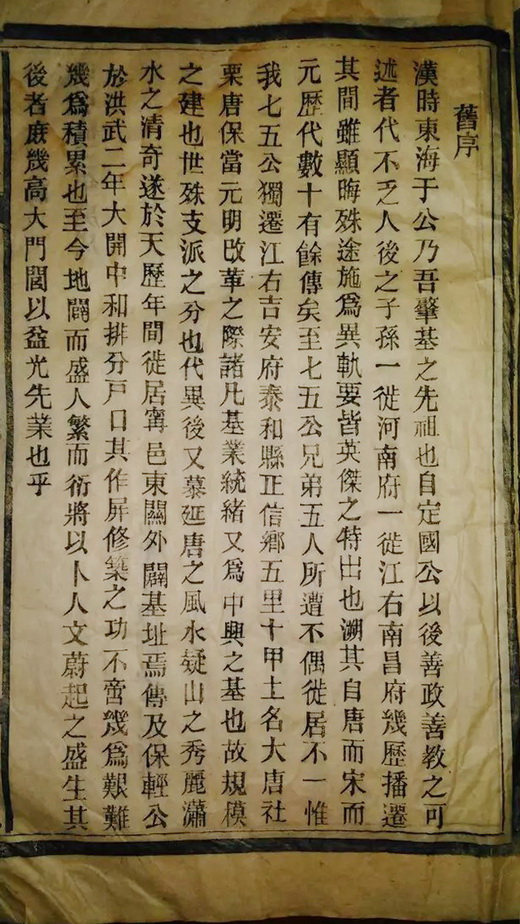 舊序
漢時東海于公乃吾肇基之先祖也自定國公以後善政善教之可
述者代不乏人後之子孫一徙河南府一徙江右南昌府幾歷播遷
其間雖顯晦殊途施爲異軌要皆英傑之特出也溯其自唐而宋而
元歷代數十有餘傳矣至七五公兄弟五人所遭不偶徙居不一惟
我七五公獨遷江右吉安府泰和縣正信鄉五里十甲土名大唐社
栗唐保當元明改革之際諸凡基業統緒又爲中興之基也故規模
之建也世殊支派之分也代異後又慕延唐之風水疑山之秀麗瀟
水之清奇遂於天歷年間徙居寗邑東關外闢基址焉傳及保輕公
於洪武二年大開中和排分戶口其作屏修築之功不啻幾爲艱難
幾爲積累也至今地闢而盛人繁而衍將以卜人文蔚起之盛生其
後者庶幾高大門閭以益光先業也乎